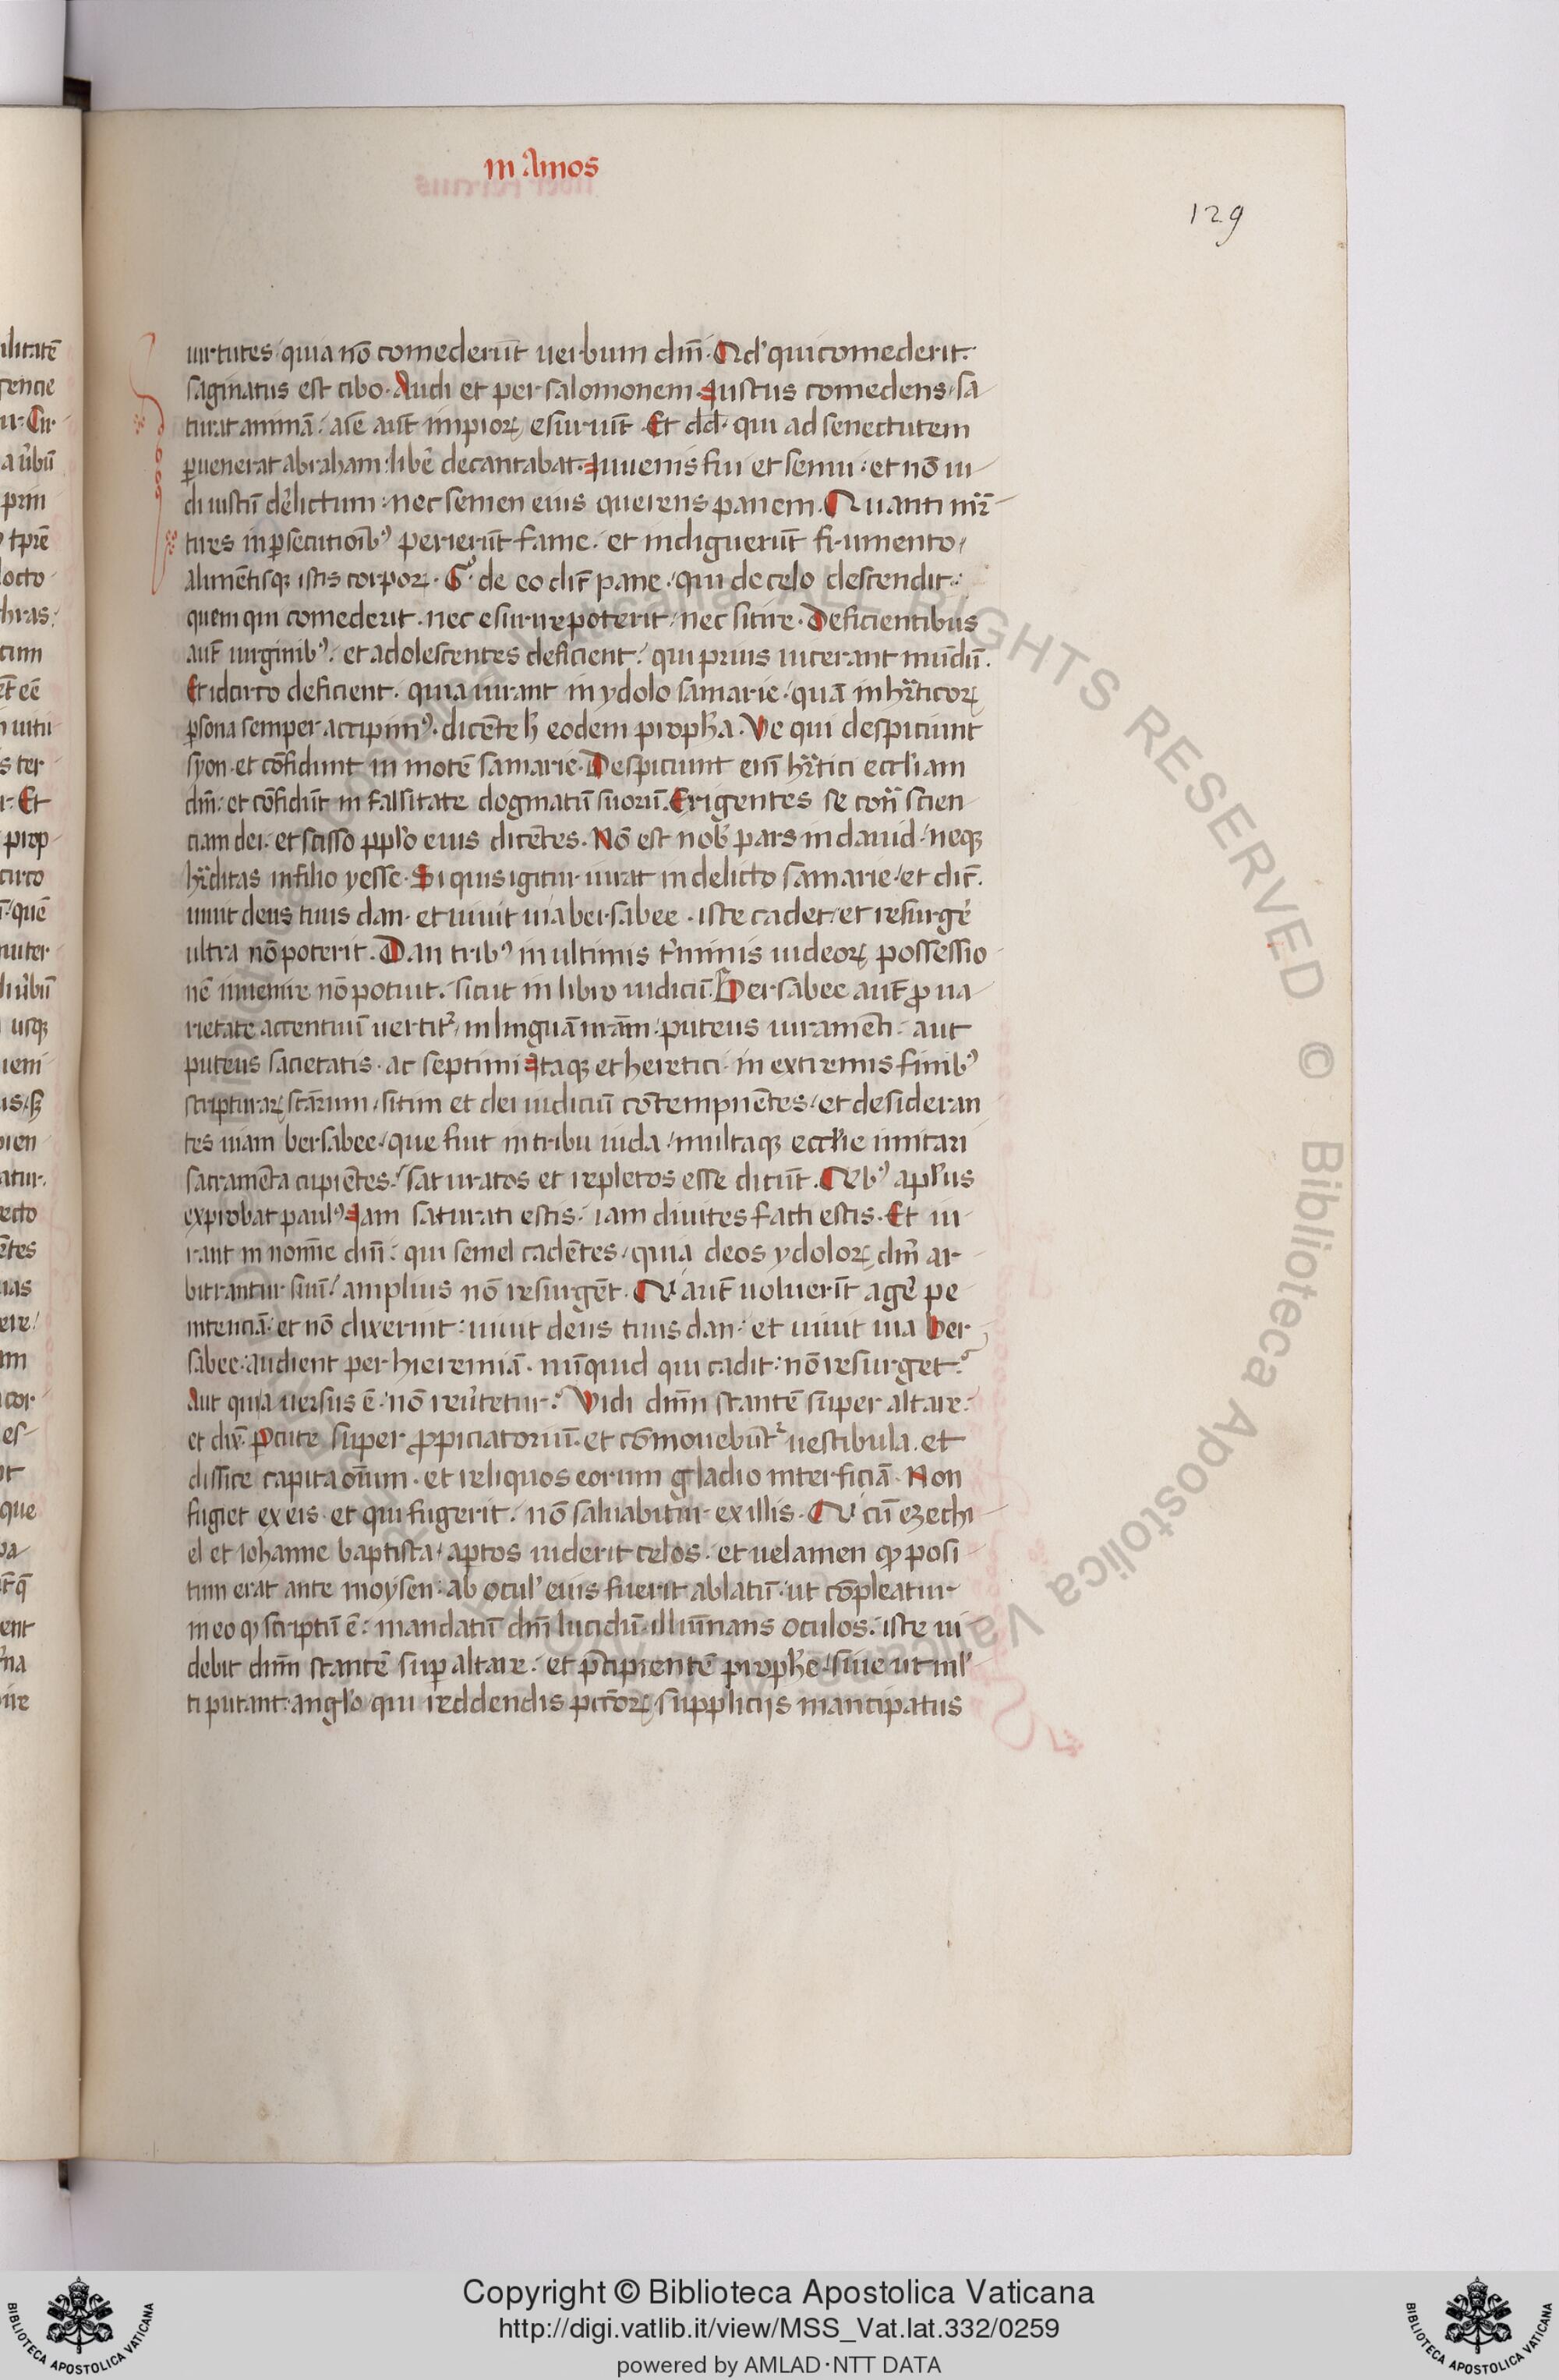 in Amos
129
uirtutes quia nō comederūt uerbum dm̄. Qd' qui comederit.
saginatus est cibo. Audi et per salomonem. Iustus comedens sa
turat animā. aīe aūt impioꝝ esuriūt. Et dd. qui ad senectutem
ꝑuenerat abraham: libe decantabat. Iuuenis fui et senui: et nō ui
di iustū delictum: nec semen eius querens panem. Quanti mr̄
tires in ꝑsecutioīb' perierūt fame. et indiguerūt frumento
alimētisqꝫ istis corpoꝝ. de eo dic̄ pane. qui de celo descendit:
quem qui comederit. nec esurire poterit. nec sitire. Deficientibus
aut̄ uirginib'. et adolescentes deficient. qui prius uicerant mūdū.
Et idcirco deficient. quia iurant in ydolo samarie. quā in hr̄ticoꝝ
ꝑsona semper accipim'. dicēte h̄ eodem proph̄a. Ve qui despiciunt
syon. et cōfidunt in motē samarie. Despiciunt eni hr̄tici eccl'iam
dm̄. et cōfidūt in falsitate dogmatū suorū. Erigentes se cont̄ scien
ciam dei. et scisso ppl'o eius dicētes. Nō est nob' pars in dauid. neqꝫ
hr̄ditas in filio yesse. Si quis igitur iurat in delicto samarie. et dic̄.
uiuit deus tuus dan. et uiuit uia bersabee. iste cadet. et resurgē
ultra nō poterit. Dan trib' in ultimis t'minis iudeoꝝ possessio
nē inuenire nō potuit. sicut in libro iudicū. Bersabee aut̄ ꝓ ua
rietate accentuū uertit' in linguā nr̄am. puteus iuramēti. aut
puteus sacietatis. ac septimi. Itaqꝫ et heretici. in extremis finib'
scripturaꝝ sc̄arum. sitim et dei iudiciū cōtempnētes. et desideran
tes uiam bersabee. que fuit in tribu iuda. multaqꝫ eccl'ie imitari
sacramēta cupiētes. saturatos et repletos esse dicūt. Qib' apl'us
exprobat paul'. Iam saturati estis. iam diuites facti estis. Et iu
rant in nomīe dm̄: qui semel cadētes. quia deos ydoloꝝ dm̄ ar
bitrantur suū. amplius nō resurgēt. Qi aut̄ uoluerīt agē pe
intenciā. et nō dixerint: uiuit deus tuus dan. et uiuit uia ber
sabee. audient per hieremiā. nūquid qui cadit: nō resurget.
Aut quia uersus ē. nō reu'tetur. Vidi dm̄m stantē super altare.
et dix̄. Pcute super ꝓpiciatoriū. et cōmouebūt' uestibula. et
dissice capita oīum. et reliquos eorum gladio interficiā. Non
fugiet ex eis. et qui fugerit. nō saluabitur ex illis. Qi cū ezechi
el et iohanne baptista. aptos uiderit celos. et uelamen qꝫ posi
tum erat ante moysen: ab ocul' eius fuerit ablatū. ut cōpleatur
in eo qꝫ scriptū ē: mandatū dm̄ lucidū. illumīans oculos. iste ui
debit dm̄m stantē suꝑ altare. et p̄cipientē proph̄e. siue ut ml'
ti putant. angl'o qui reddendis pcc̄oꝝ supplicijs mancipatus
Copyright © Biblioteca Apostolica Vaticana
http://digi.vatlib.it/view/MSS_Vat.lat.332/0259
powered by AMLAD·NTT DATA